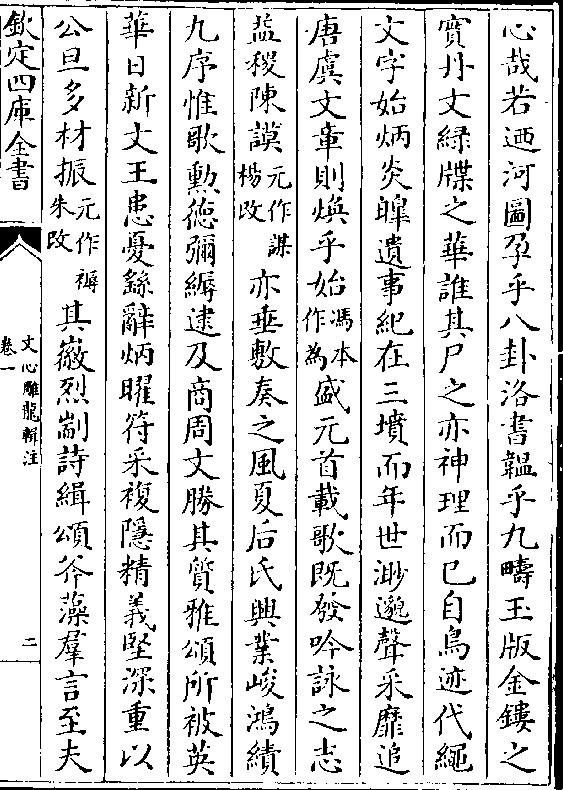 心哉若迺河圖孕乎八卦洛書韞乎九疇玉版金鏤之
實丹文綠牒之華誰其尸之亦神理而已自鳥迹代繩
文字始炳炎皥遺事紀在三墳而年世渺邈聲采靡追
唐虞文章則煥乎始馮本作為盛元首載歌既發吟詠之志
益稷陳謨元作謀楊改亦垂敷奏之風夏后氏興業峻鴻績
九序惟歌勲德彌縟逮及商周文勝其質雅頌所被英
華日新文王患憂繇辭炳曜符采複隱精義堅深重以
公旦多材振元作褥朱改其徽烈剬詩緝頌斧藻羣言至夫
欽定四庫全書
文心雕龍輯注
卷一
二